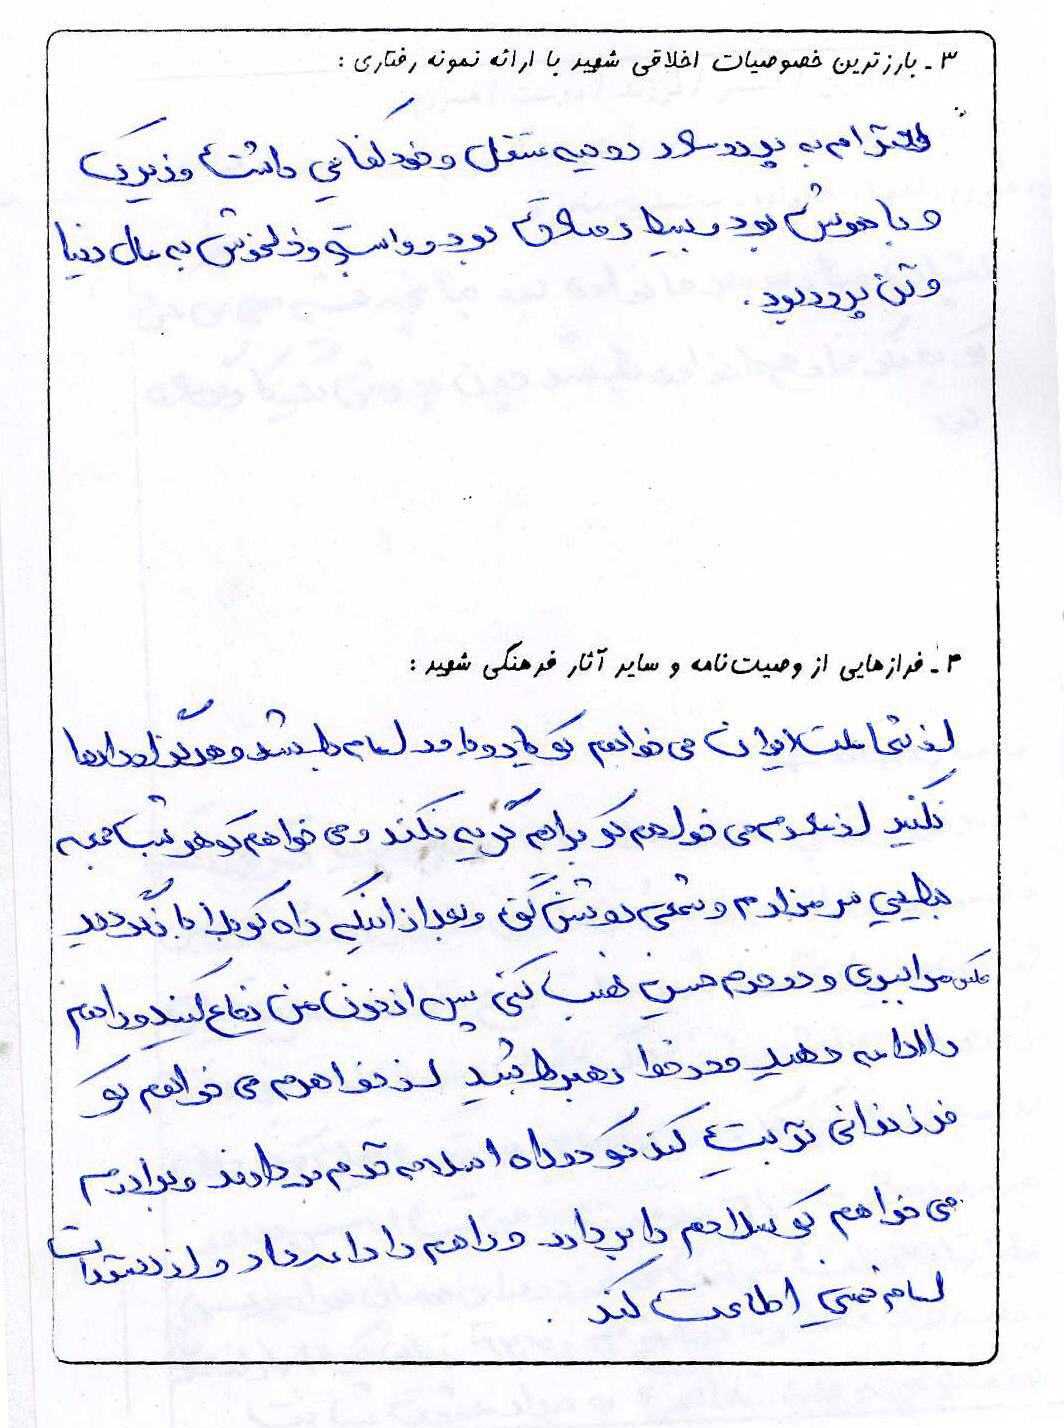 ۳ - بارزترین خصوصیات اخلاقی شهید با ارائه نمونه رفتاری :
احترام به پدر و مادر روحیه مستقل و خودکفایی داشت و زیرک
و با هوش بود و بسیار صادق بود و وابستگی و دلخوش به مال دنیا
و تن پرور نبود .
۴ - فرازهایی از وصیت نامه و سایر آثار فرهنگی شهید :
از شما ملت ایران می خواهم که یار و یاور امام باشید و هرگز او را رها
نکنید از مادرم می خواهم که برایم گریه نکند و می خواهم که هر شب جمعه
بیایی سر مزارم و شمعی روشن کنی و بعد از اینکه راه کربلا باز گردید
عکس مرا ببری و در حرم حسین نصب کنی پس از خون من دفاع کنید و راهم
را ادامه دهید و در خط رهبر باشید از خواهرم می خواهم که
فرزندانی تربیت کند که در راه اسلام قدم بردارند و برادرم
می خواهم که سلاحم را بردارد و راهم را ادامه دهد و از دستورات
امام خمینی اطاعت کند .